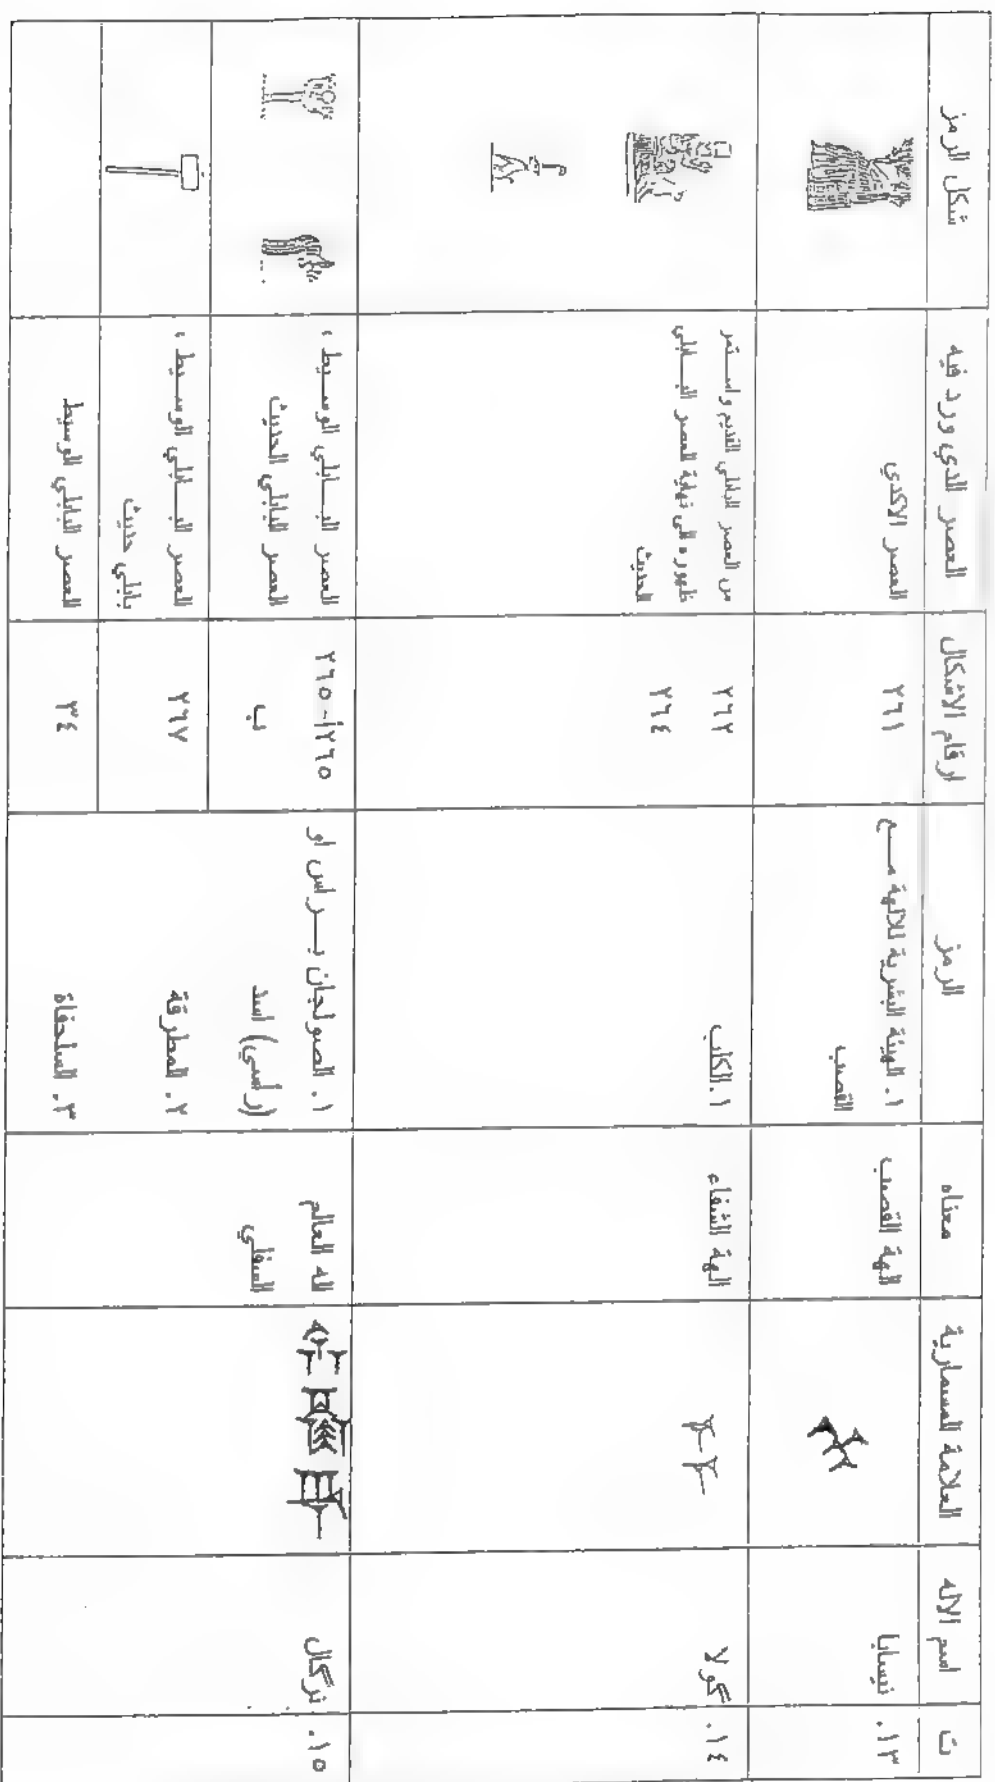 ت اسم الاله العلامة المسمارية معناه الرمز ارقام الاشكال العصر الذي ورد فيه شكل الرمز
١٣. نيسابا الهة القصب ١. الهيئة البشرية للالهة مــع ٢٦١ العصر الاكدي
القصب
١٤. گولا الهة الشفاء ١. الكلب ٢٦٢ من العصر البابلي القديم واستــمر
٢٦٤ ظهوره الى نهاية العصر البــابلي
الحديث
١٥. نرگال اله العالم ١. الصولجان بــراس او ٢٦٥أ-٢٦٥ العصر البــابلي الوســيط ،
السفلي (رأسي) اسد ب العصر البابلي الحديث
٢. المطرقة ٢٦٧ العصر البــابلي الوســيط ،
بابلي حديث
٣. السلحفاة ٣٤ العصر البابلي الوسيط